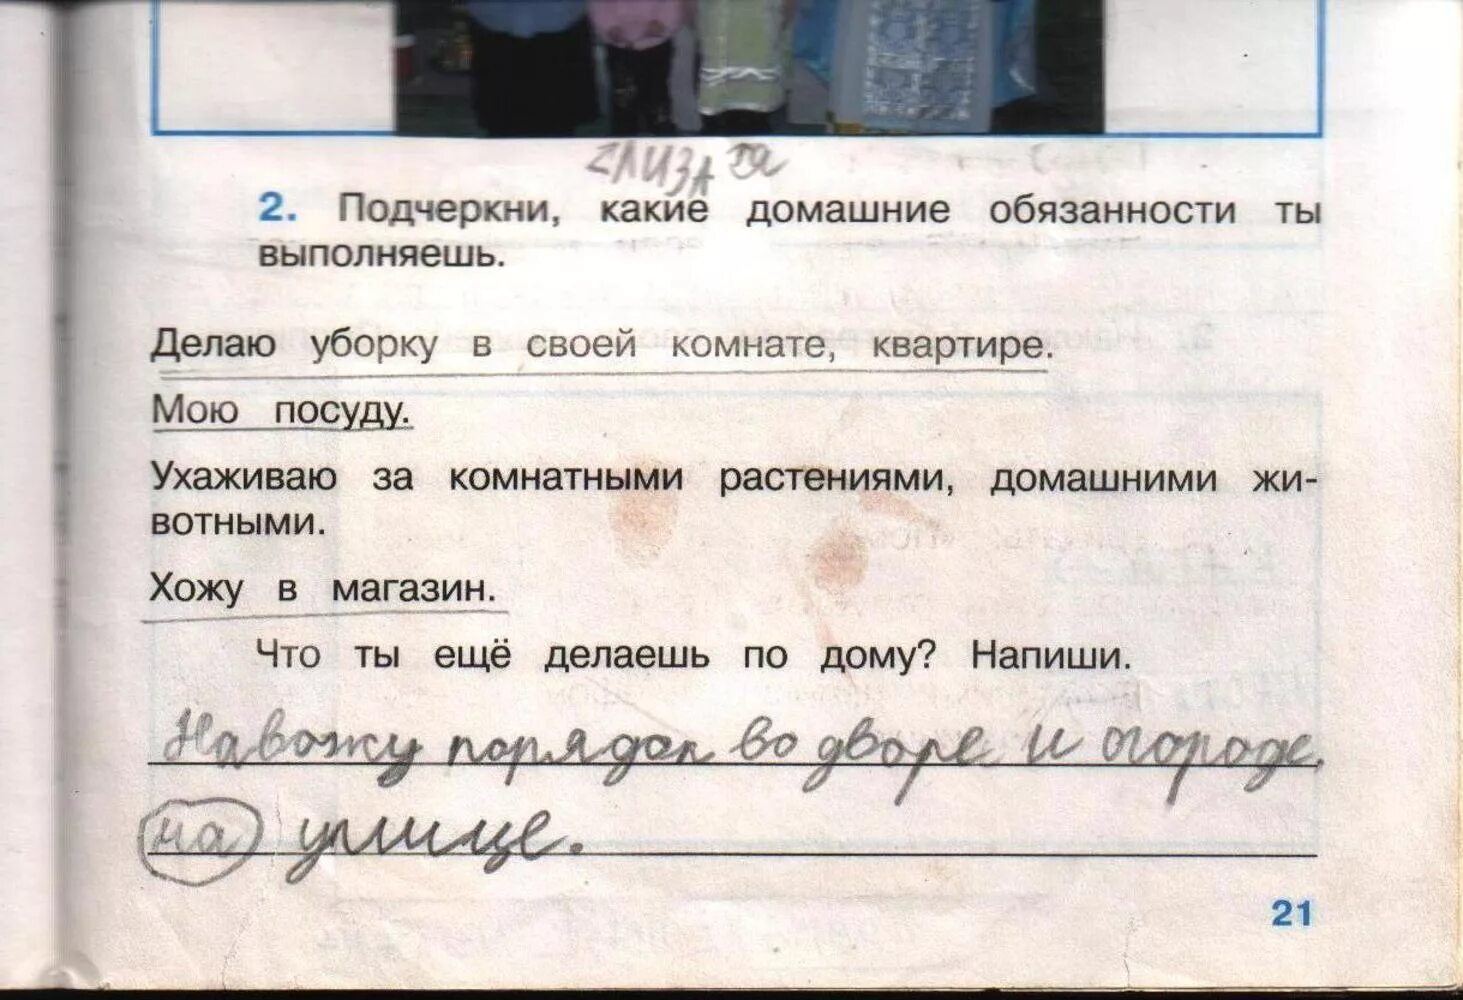 ЕЛИЗА ЗЯ
2. Подчеркни, какие домашние обязанности ты
выполняешь.
Делаю уборку в своей комнате, квартире.
Мою посуду.
Ухаживаю за комнатными растениями, домашними жи-
вотными.
Хожу в магазин.
Что ты ещё делаешь по дому? Напиши.
Навожу порядок во дворе и огороде,
на улице.
21